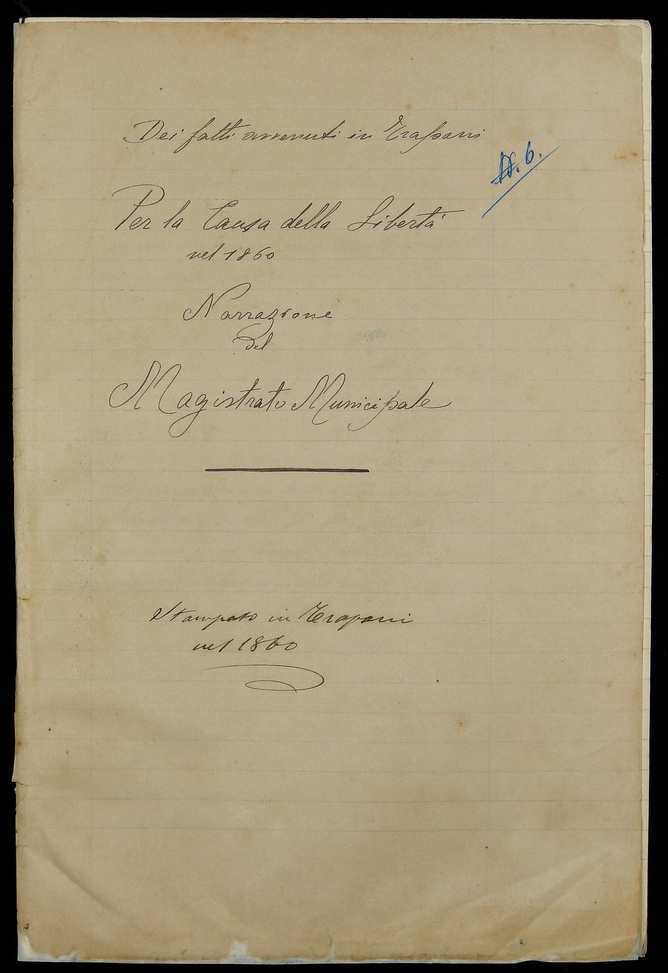 Dei fatti avvenuti in Trapani
N. 6.
Per la Causa della Libertà
nel 1860
Narrazione
del
Magistrato Municipale
Stampato in Trapani
nel 1860